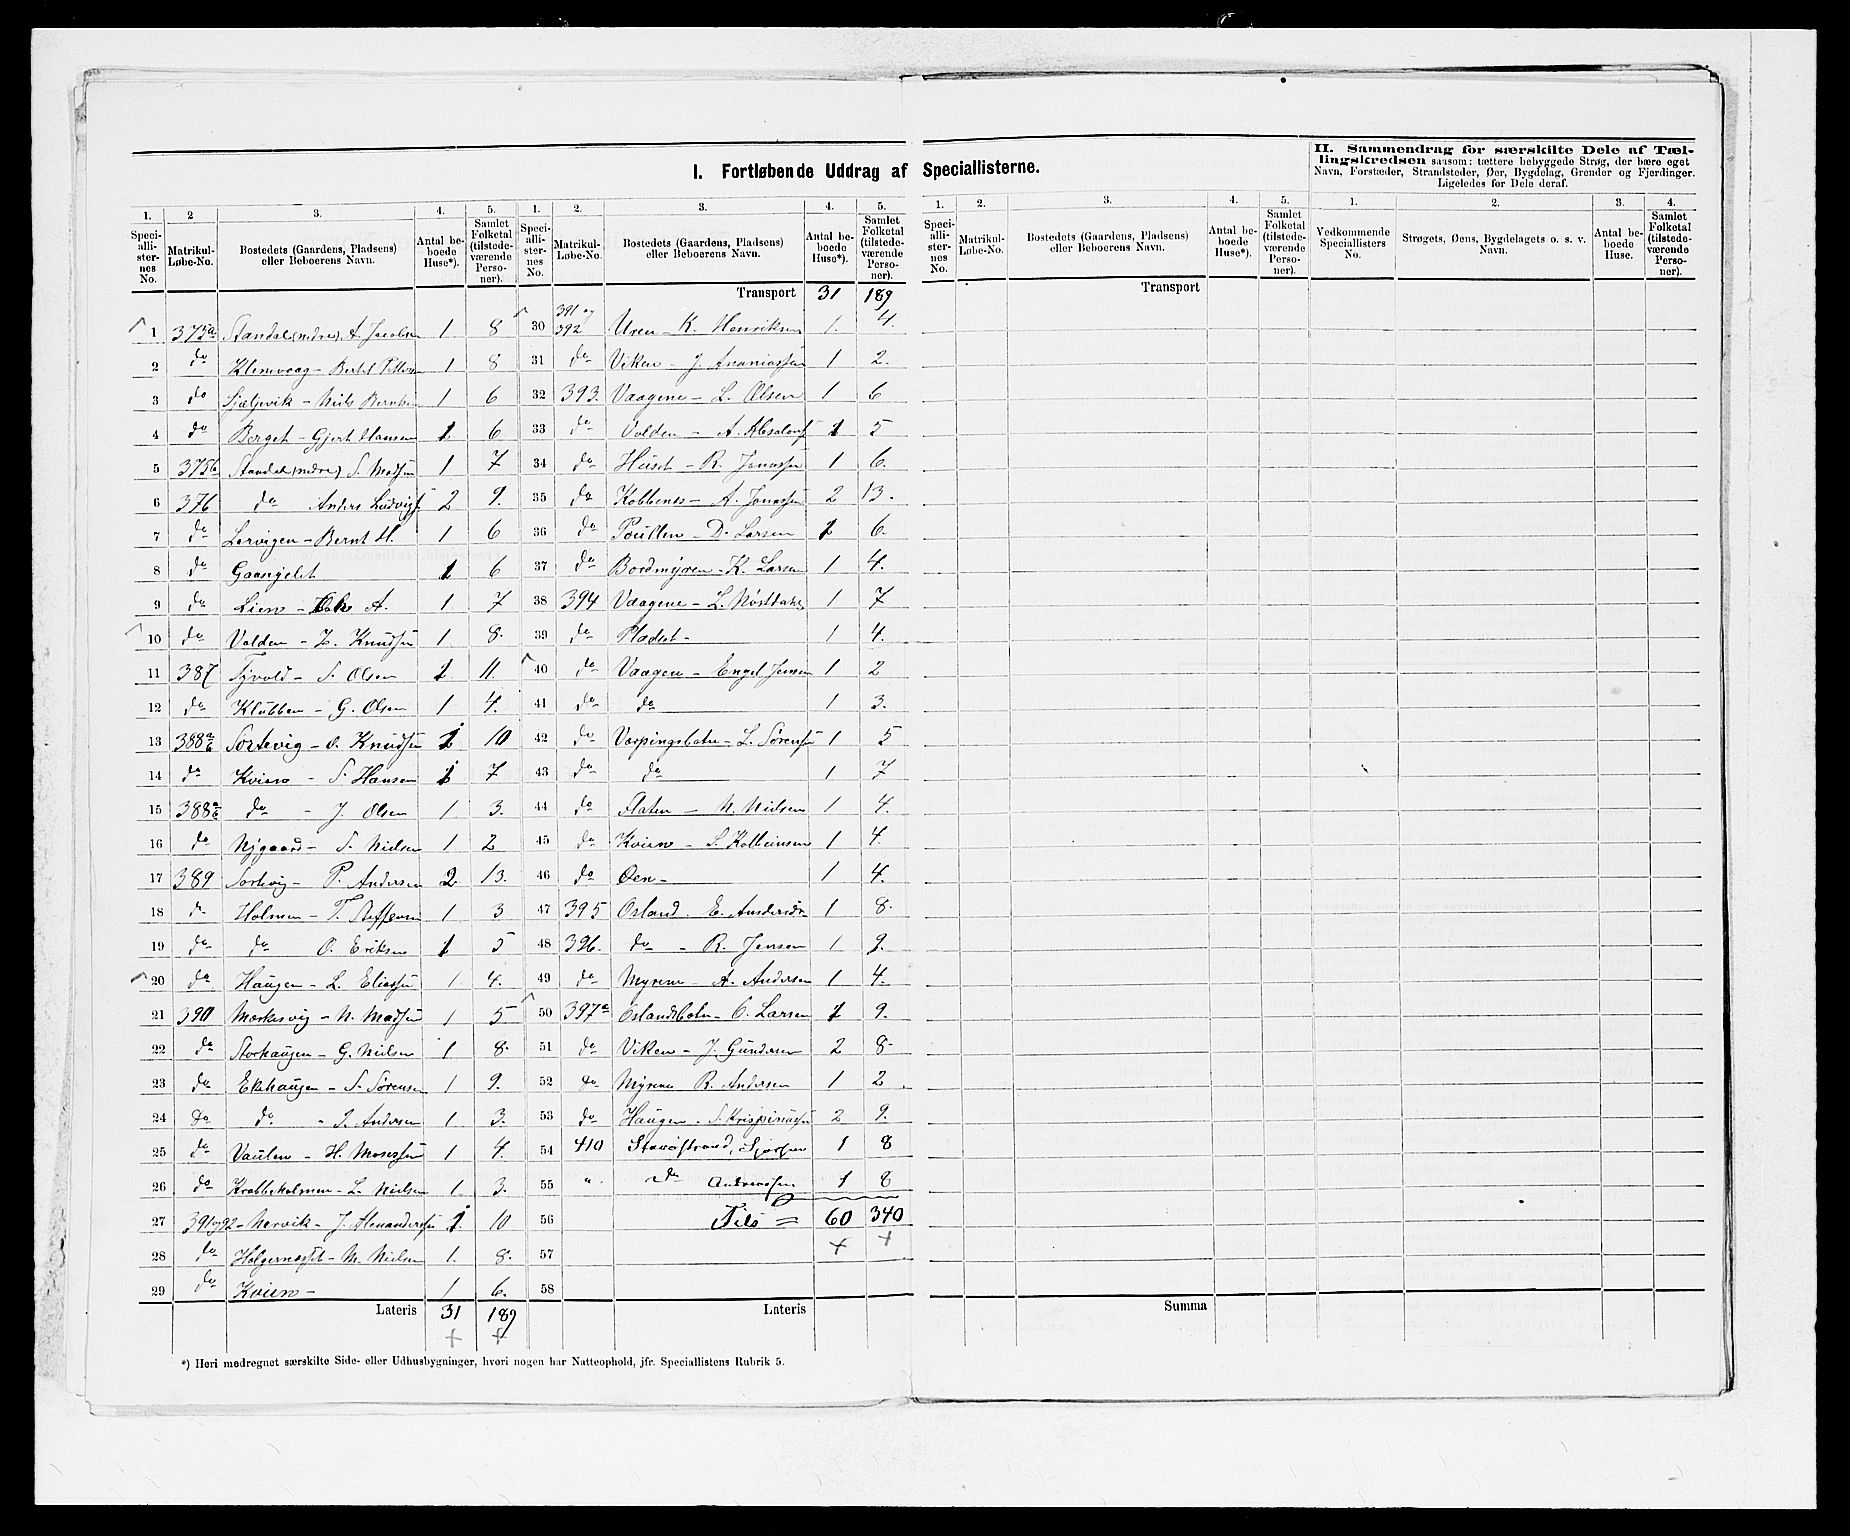 I. Fortløbende Uddrag af Speciallisterne.
II. Sammendrag for særskilte Dele af Tæl-
lingskredsen saasom: tættere bebyggede Strøg, der bære eget
Navn, Forstæder, Strandsteder, Øer, Bygdelag, Grender og Fjerdinger.
Ligeledes for Dele deraf.
1. 2 3. 4. 5. 1. 2. 3. 4. 5. 1. 2. 3. 4. 5. 1. 2. 3. 4.
Speciallisternes No. Matrikul-Løbe-No. Bostedets (Gaardens, Pladsens) eller Beboerens Navn. Antal beboede Huse*). Samlet Folketal (tilstedeværende Personer).
Speciallisternes No. Matrikul-Løbe-No. Bostedets (Gaardens, Pladsens) eller Beboerens Navn. Antal beboede Huse*). Samlet Folketal (tilstedeværende Personer).
Speciallisternes No. Matrikul-Løbe-No. Bostedets (Gaardens, Pladsens) eller Beboerens Navn. Antal beboede Huse*). Samlet Folketal (tilstedeværende Personer).
Vedkommende Speciallisters No. Strøgets, Øens, Bygdelagets o. s. v. Navn. Antal beboede Huse. Samlet Folketal (tilstedeværende Personer).
1 375a Standal (nedre), A. Jacobsen 1 8
2 do Klemvaag - Bertel 1 8
3 do - Niels Berntsen 1 6
4 do Berget - Gjert Hansen 1 6
5 375b Standal (nedre) S. Madsen 1 7
6 376 do Anders Ludvigs 2 9.
7 do Lervigen - Bernt H. 1 6
8 do Gaangelet 1 6
9 do Lien - A. 1 7
10 do Volden - Knudsen 1 8.
11 387 Tyvold - S. Olsen 1 11.
12 do Klubben - G. Olsen 1 4.
13 388 a/b Sortevig - O. Knudsen 1 10
14 do Kvien - S. Hansen 1 7
15 388 a/b do - J. Olsen 1 3.
16 do Nygaard - S. Nielsen 1 2
17 389 Sortevig - P. Andersen 2 13.
18 do Holmen - T. Steffensen 1 3
19 do do O. Eriksen 1 5
20 do Haugen - L. Eliassen 1 4.
21 390 Mærkesvig - N. Madsen 1 5
22 do Storhaugen - G. Nielsen 1 8.
23 do Ekhaugen - S. Sørensen 1 9.
24 do do - J. Andersen 1 3.
25 do Vaulen - H. Mosessen 1 4.
26 do Krabbeholmen - L. Nielsen 1. 3.
27 391 og 92 - Nervik - J. Alexandersen 1. 10
28 do Holgernesset - M. Nielsen 1. 8.
29 do Kvien - 1 6.
Lateris 31 189
*) Heri medregnet særskilte Side- eller Udhusbygninger, hvori nogen har Natteophold, jfr. Speciallistens Rubrik 5.
Transport 31 189
30 391 og 392 Uren - K. Henriksen 1. 4.
31 do Viken - J. Ananiassen 1 2.
32 393. Vaagene - L. Olsen 1 6
33 do Volden - A. Absalons 1 5
34 do Huset - R. Jonassen 1 6.
35 do Kobbenes - A. Jonassen 2 13.
36 do - D. Larsen 1 6.
37 do Bordmyren - K. Larsen 1 4.
38 394 Vaagene - L. Nøstdahl 1 7
39 do Pladset - 1 4.
40 do Vaagene - Engel Jensen 1 2
41 do do 1 3.
42 do Varpingsbotn - L. Sørensen 1 5
43 do do 1 7
44 do Flaten - N. Nielsen 1 4.
45 do Kvien - S. Kolbeinsen 1 4.
46 do Øen - 1 4.
47 395 Osland. E. Andersen 1 8.
48 396. do - R. Jensen 1 9.
49 do Myrene - A. Andersen 1 4.
50 397a Oslandsbotn - O. Larsen 1 9.
51 do Viken - J. Gundersen 2 8
52 do Myrene R. Andersen 1 2
53 do Haugen - S. Krispinussen 2 9.
54 410 1 8
55 " do Andreassen 1 8
56 Tils = 60 340
57
58
Lateris
Transport
Summa